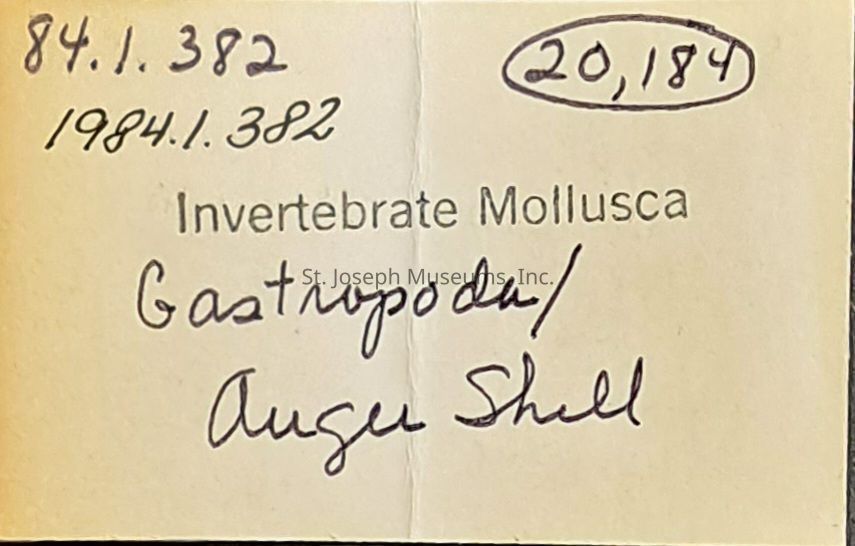 84.1.382
20,184
1984.1.382
Invertebrate Mollusca
St. Joseph Museums, Inc.
Gastropoda/
Auger Shell